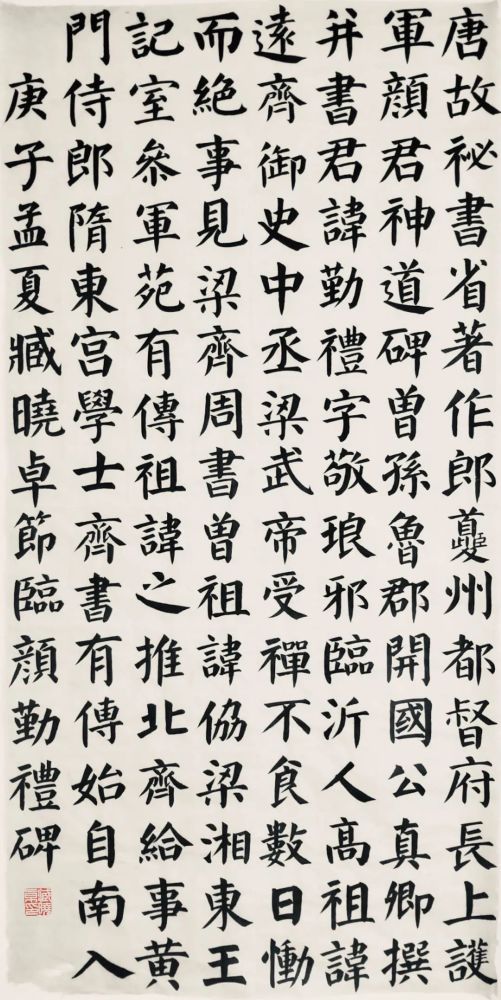 唐故祕書省著作郎夔州都督府長上護
軍顏君神道碑曾孫魯郡開國公真卿撰
并書君諱勤禮字敬琅邪臨沂人高祖諱
遠齊御史中丞梁武帝受禪不食數日慟
而絕事見梁齊周書曾祖諱協梁湘東王
記室參軍苑有傳祖諱之推北齊給事黃
門侍郎隋東宮學士齊書有傳始自南入
庚子孟夏臧曉卓節臨顏勤禮碑